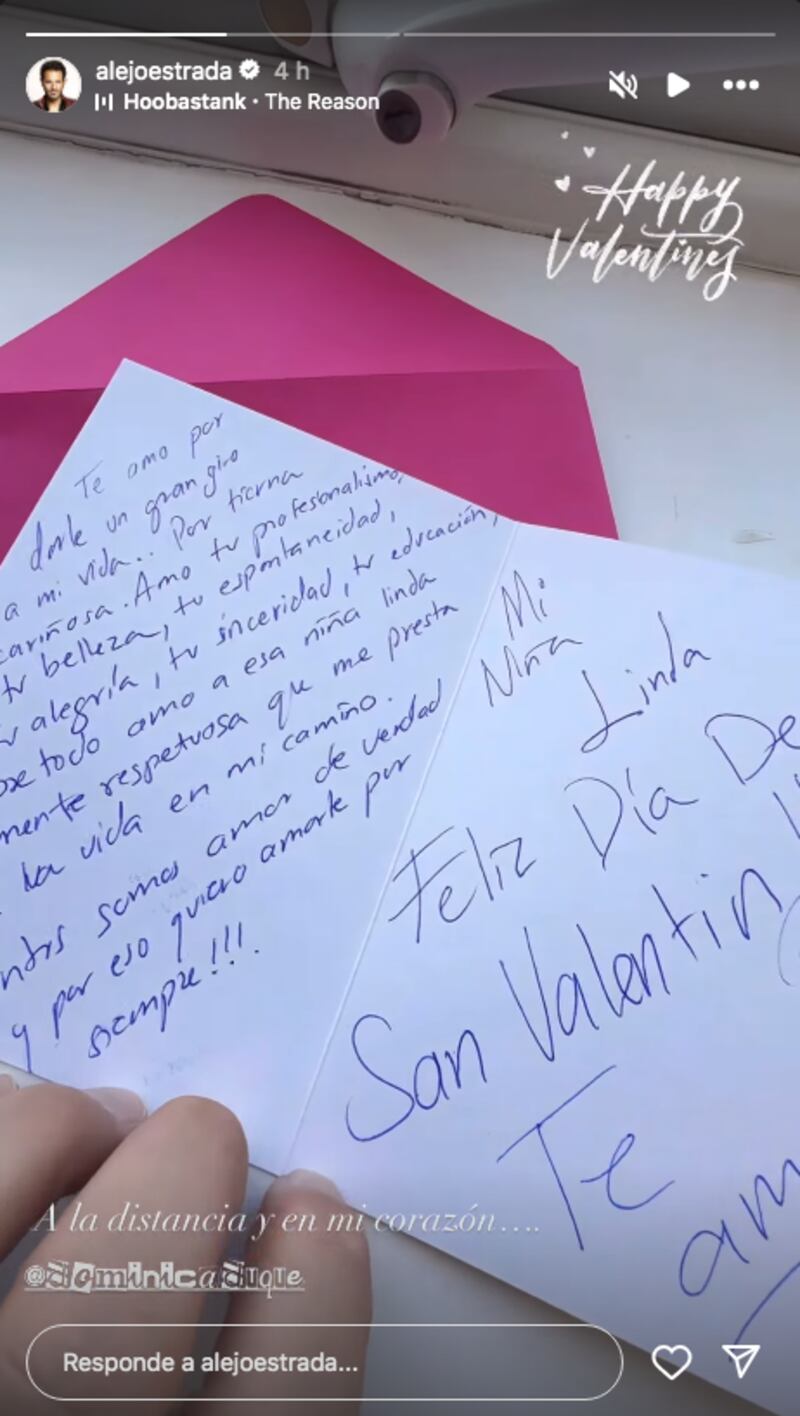 alejoestrada 4 h
Hoobastank · The Reason
Happy
Valentines
Te amo por
darle un gran giro
a mi vida.. Por tierna
cariñosa. Amo tu profesionalismo,
tu belleza, tu espontaneidad,
tu alegría, tu sinceridad, tu educación,
todo amo a esa niña linda
mente respetuosa que me presta
la vida en mi camino.
somos amor de verdad
y por eso quiero amarte por
siempre!!!.
Mi
Niña
Linda
Feliz Día De
San Valentin
Te
am
A la distancia y en mi corazón....
@dominicaduque
Responde a alejoestrada...